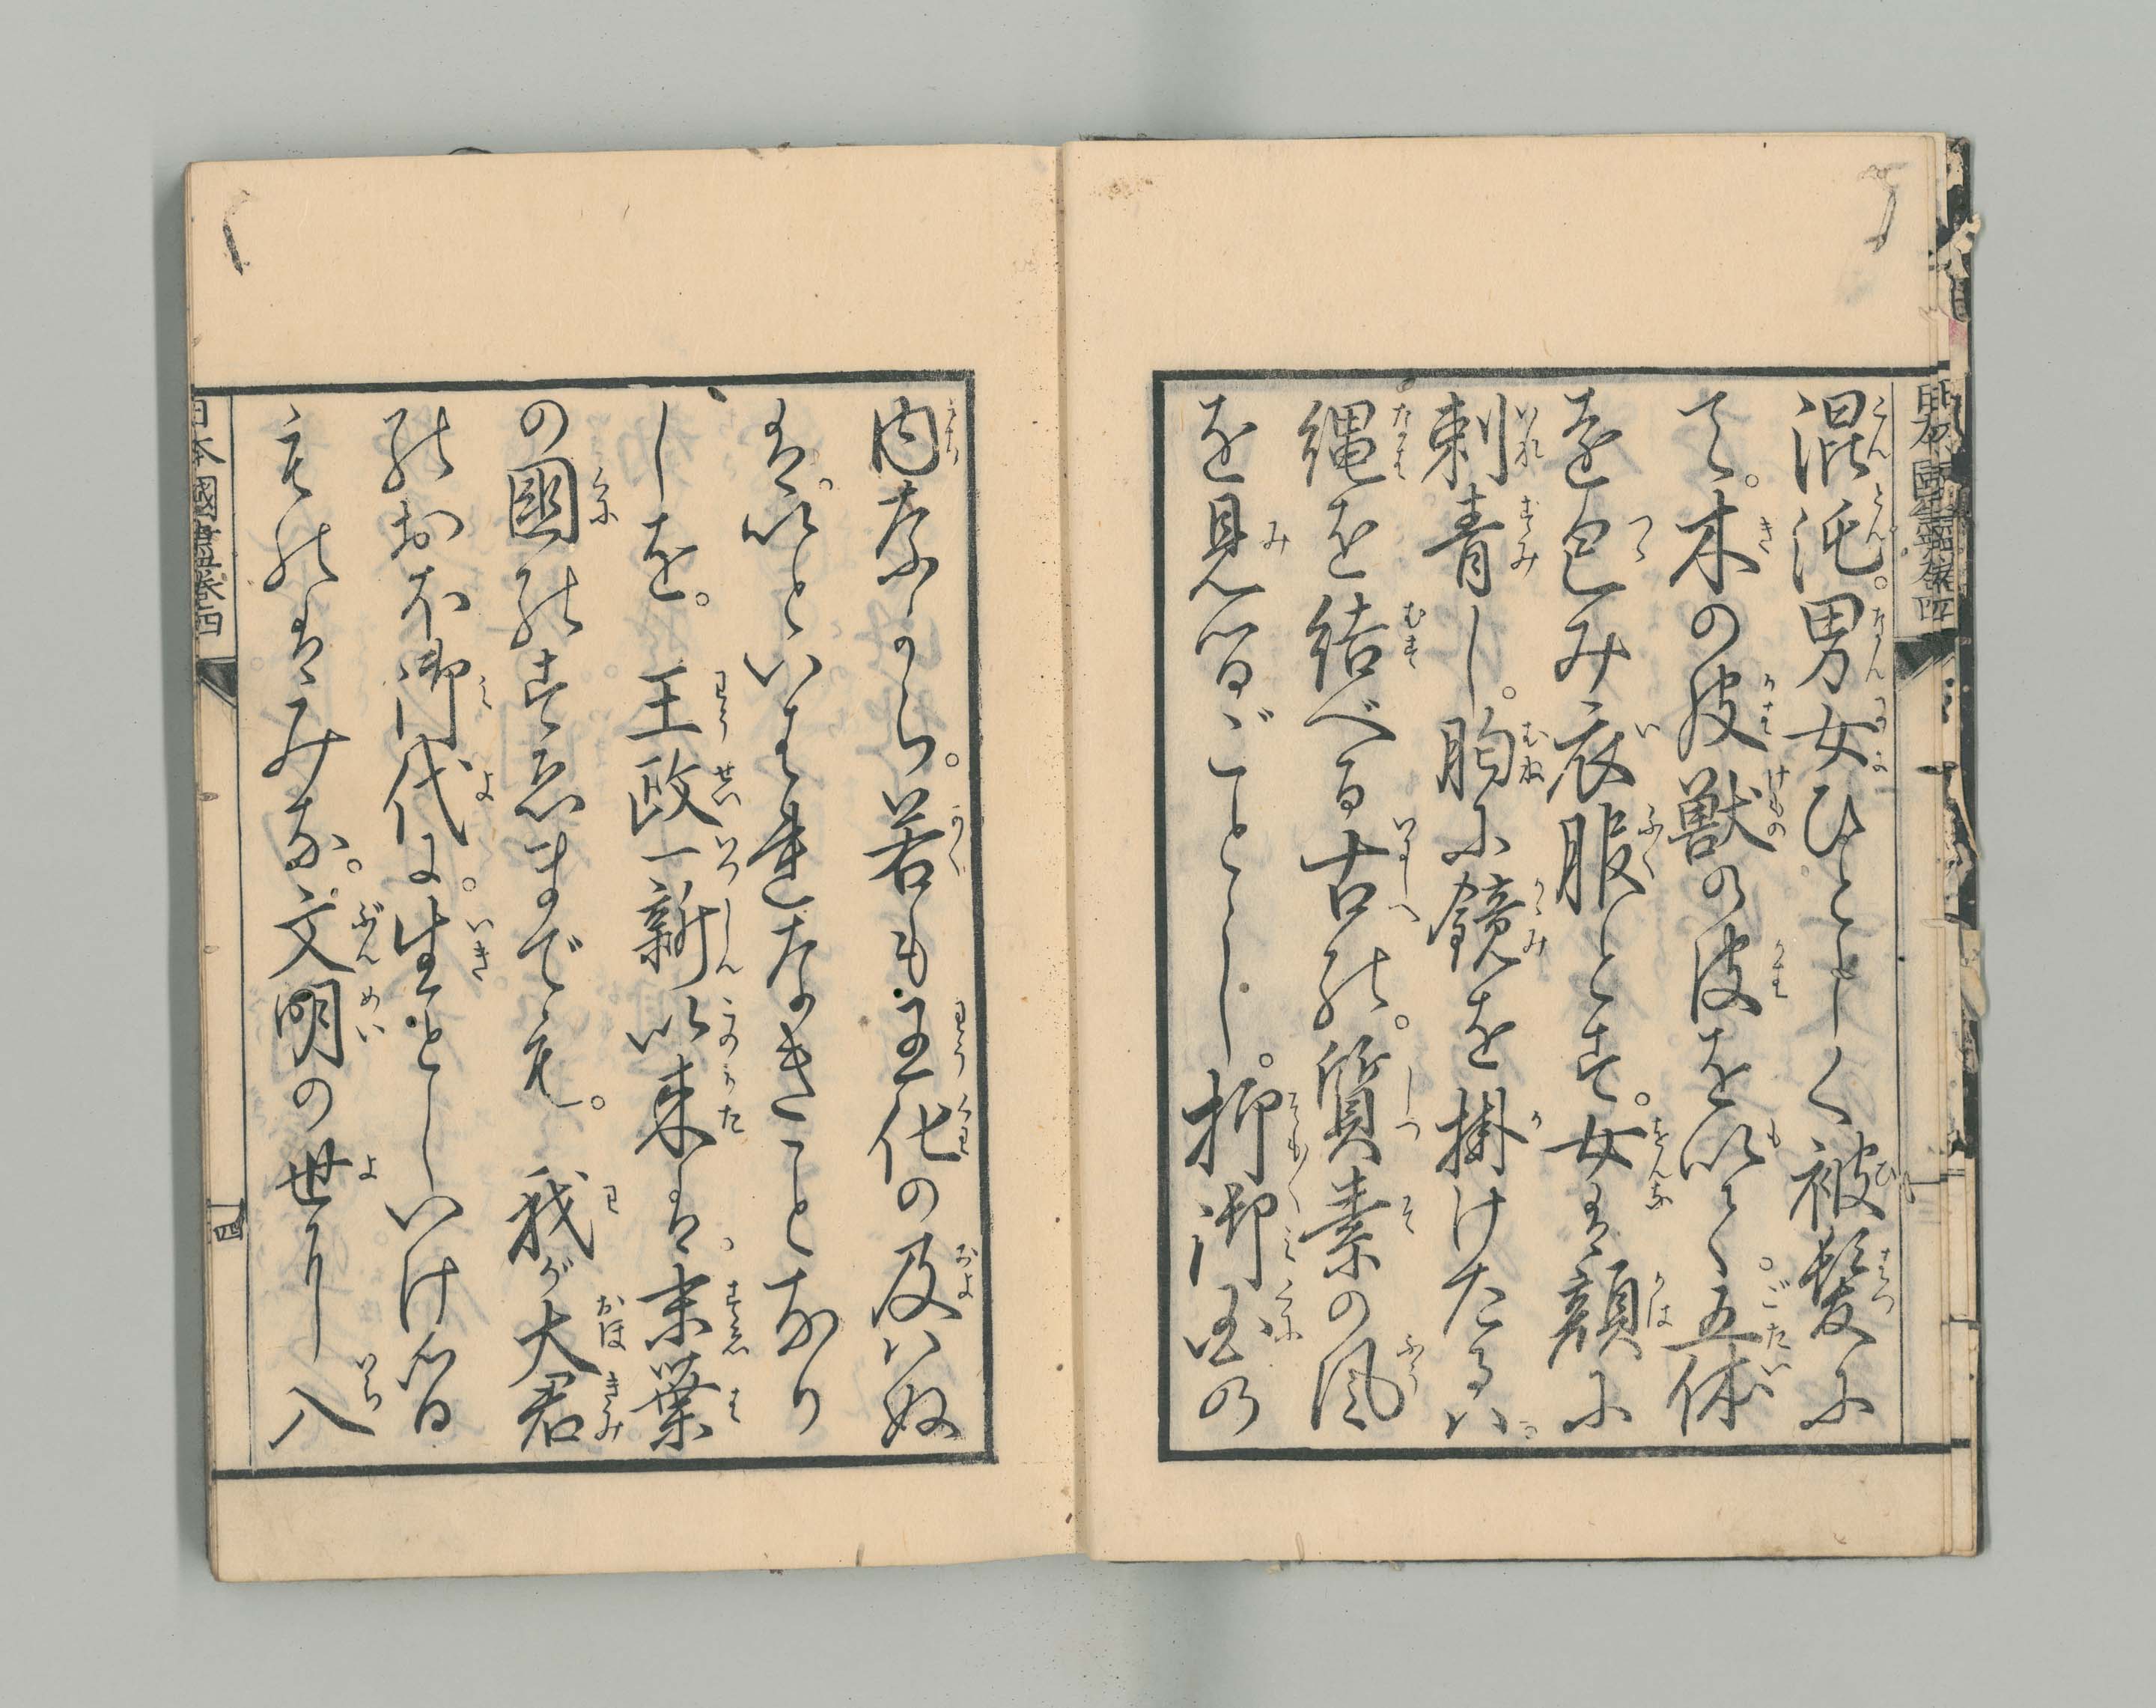 混沌。男女ひとしく被髪に
て。木の皮獣の皮を以て。五体
を包み衣服とす。女は顔に
刺青し。胸に鏡を掛けたるハ。
縄を結べる古の。質素の風
を見るごとし。抑御国の
内ながら。若も王化の及ハぬ
は。以といはれなきことなり
しを。王政一新以来は。末葉
の国のすゑまでも。我が大君
のおほ御代に。生としいける
ものはみな。文明の世より八
日本國盡巻四
四